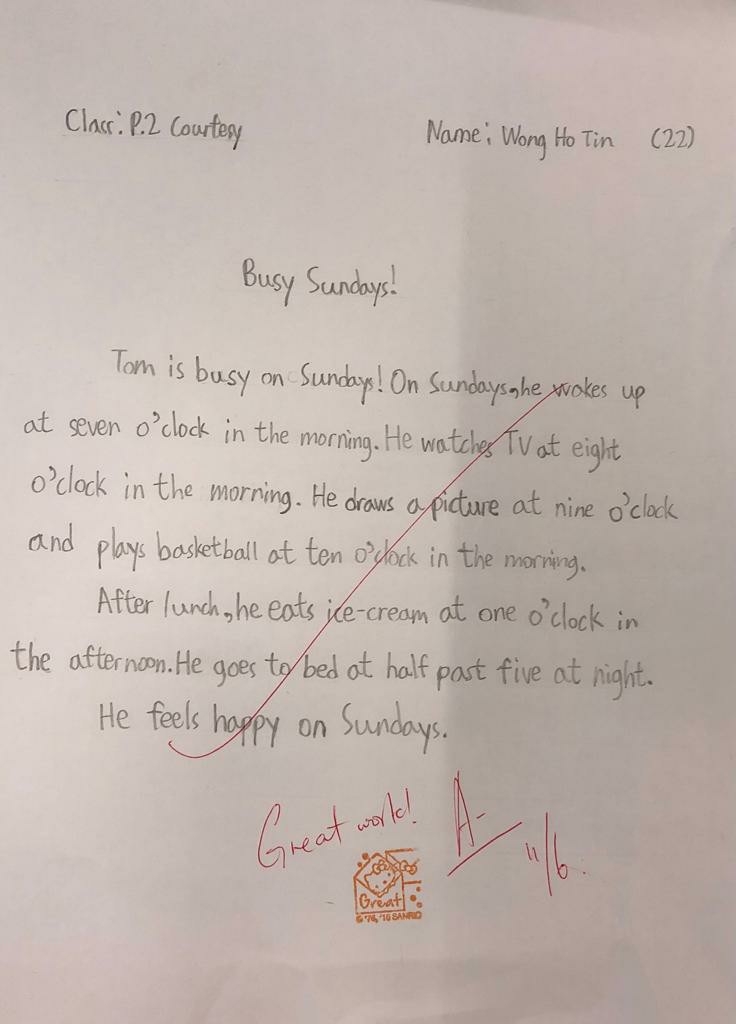 Class: P.2 Courtesy
Name: Wong Ho Tin (22)
Busy Sundays!
Tom is busy on Sundays! On Sundays, he wakes up
at seven o'clock in the morning. He watches TV at eight
o'clock in the morning. He draws a picture at nine o'clock
and plays basketball at ten o'clock in the morning.
After lunch, he eats ice-cream at one o'clock in
the afternoon. He goes to bed at half past five at night.
He feels happy on Sundays.
Great work!
A-
11/6.
Great
© '76, '16 SANRIO